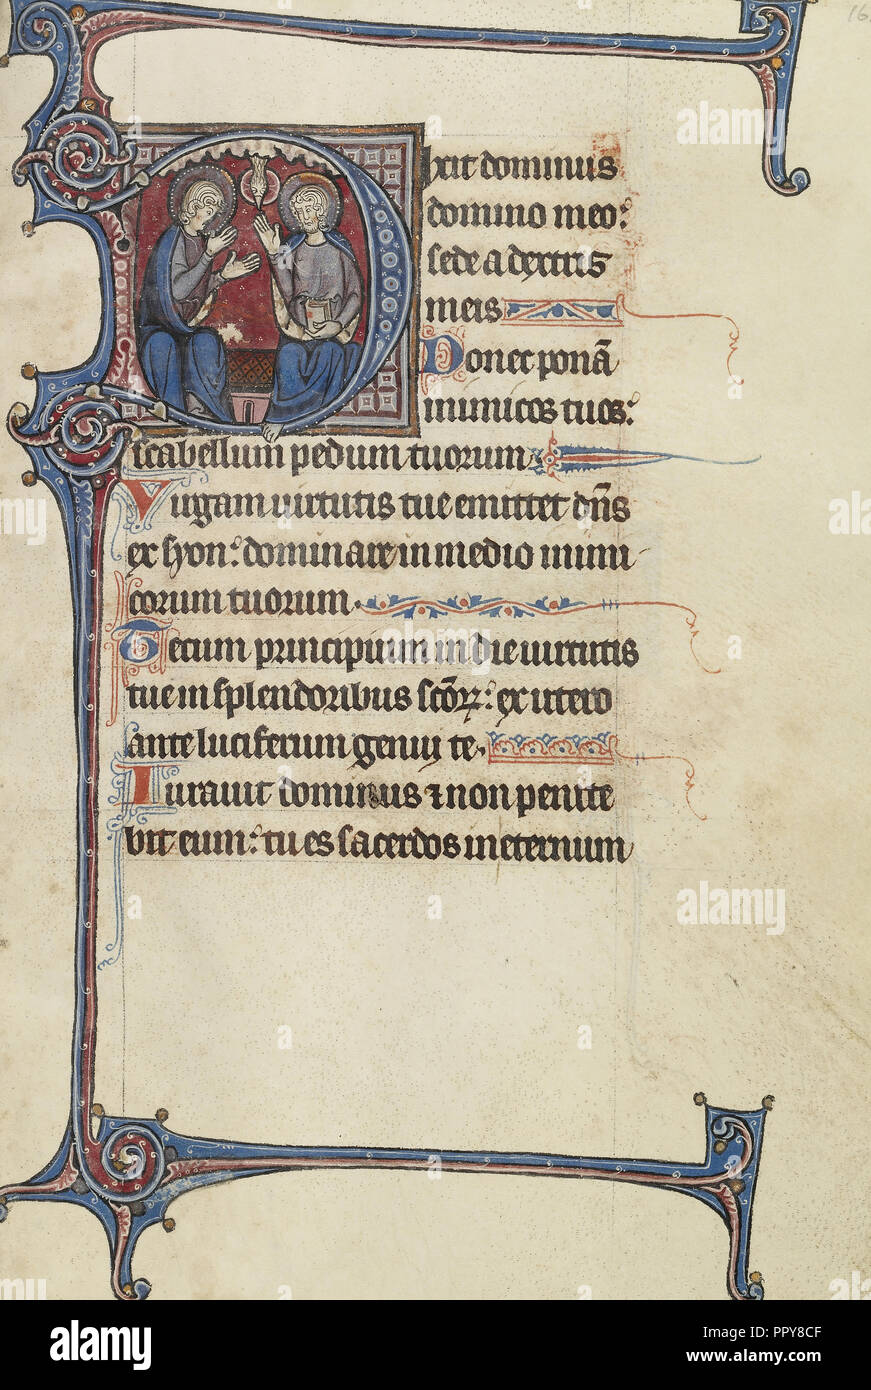 16
Dixit dominus
domino meo:
sede a dextris
meis
Donec ponã
inimicos tuos:
scabellum pedum tuorum
Virgam virtutis tue emittet dñs
ex syon: dominare in medio inimi-
corum tuorum.
Tecum principium in die virtutis
tue in splendoribus scõꝝ: ex utero
ante luciferum genui te.
Iuravit dominus ⁊ non penite
bit eum: tu es sacerdos in eternum
alamy
Image ID: PPY8CF
www.alamy.com